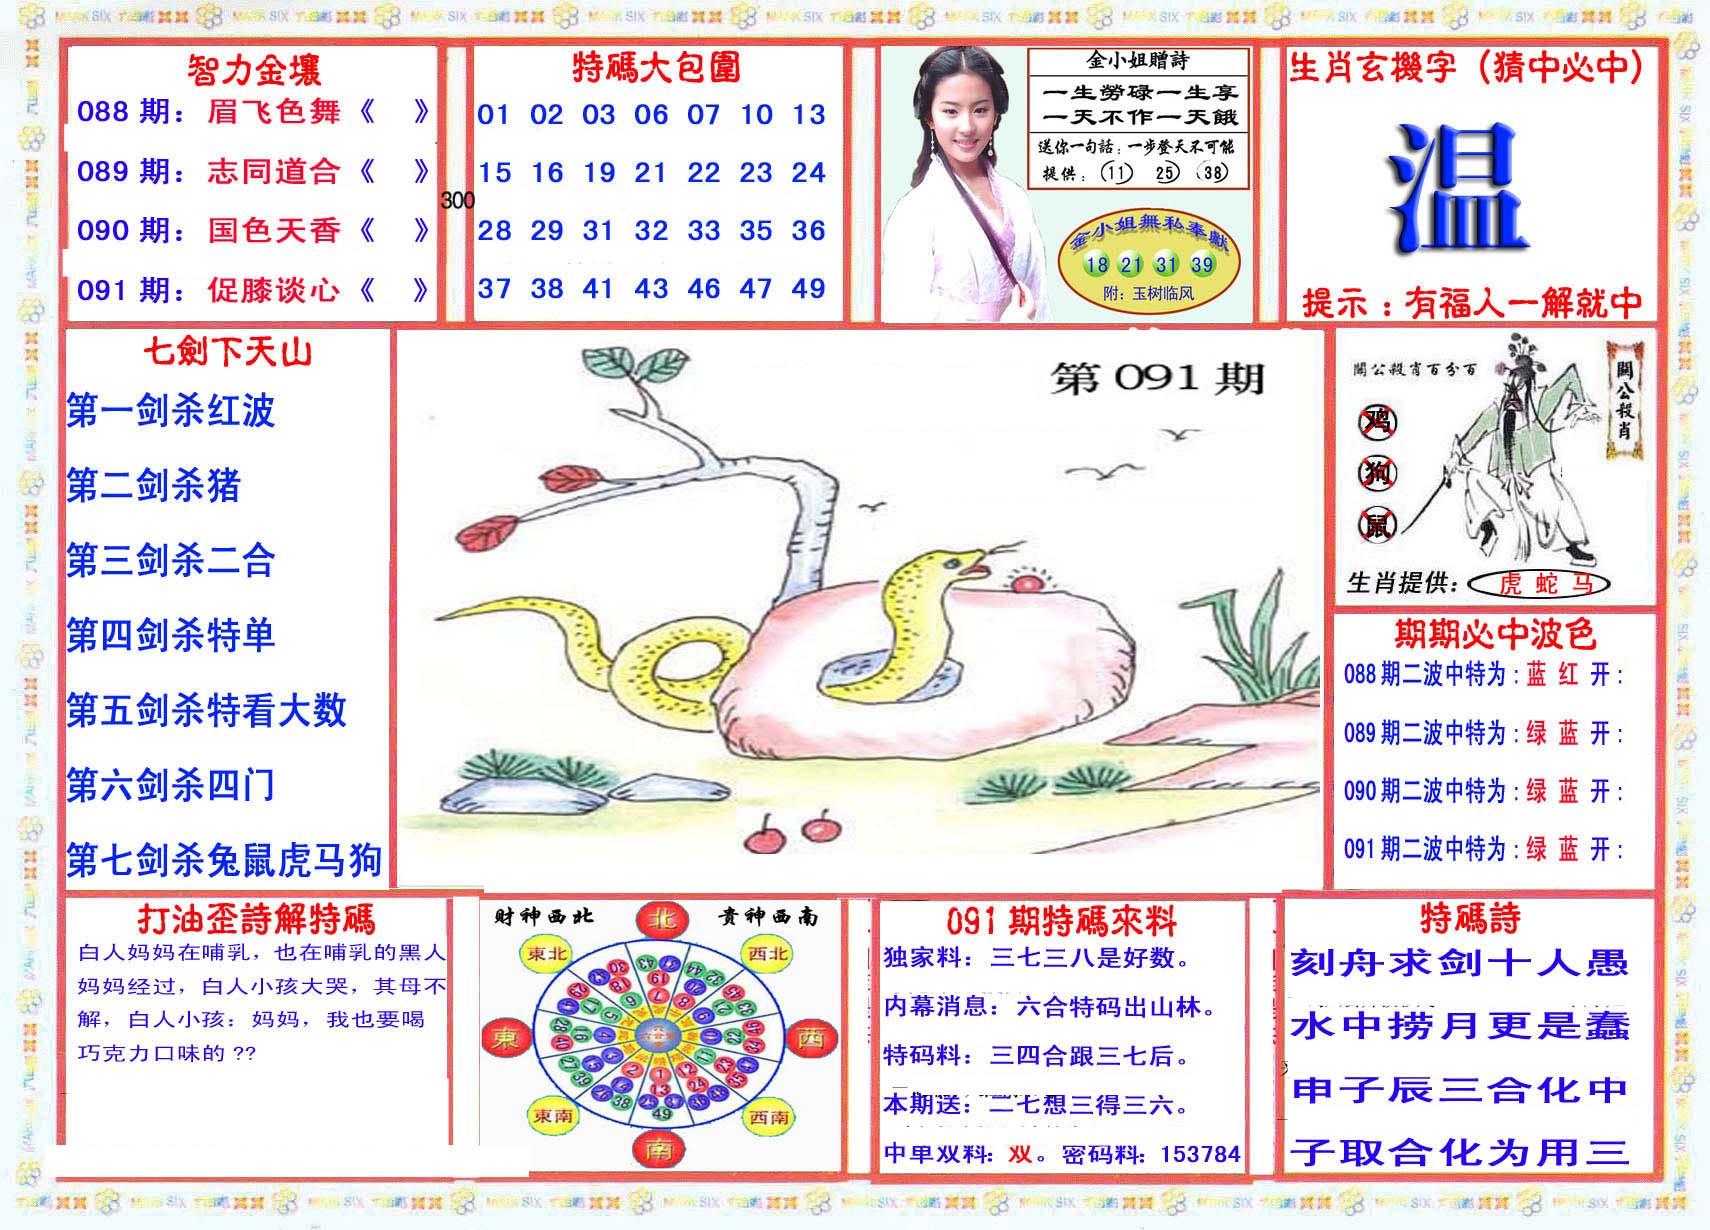 智力金壤
088 期：眉飞色舞《 》
089 期：志同道合《 》
090 期：国色天香《 》
091 期：促膝谈心《 》
300
特碼大包圍
01 02 03 06 07 10 13
15 16 19 21 22 23 24
28 29 31 32 33 35 36
37 38 41 43 46 47 49
金小姐贈詩
一生勞碌一生享
一天不作一天餓
送你一句話：一步登天不可能
提供：11 25 38
金小姐無私奉獻
18 21 31 39
附：玉树临风
生肖玄機字（猜中必中）
温
提示：有福人一解就中
七劍下天山
第一剑杀红波
第二剑杀猪
第三剑杀二合
第四剑杀特单
第五剑杀特看大数
第六剑杀四门
第七剑杀兔鼠虎马狗
第091期
關公殺肖百分百
關公殺肖
鸡
狗
鼠
生肖提供：虎 蛇 马
期期必中波色
088期二波中特为：蓝 红 开：
089期二波中特为：绿 蓝 开：
090期二波中特为：绿 蓝 开：
091期二波中特为：绿 蓝 开：
打油歪詩解特碼
白人妈妈在哺乳，也在哺乳的黑人
妈妈经过，白人小孩大哭，其母不
解，白人小孩：妈妈，我也要喝
巧克力口味的??
财神西北
貴神西南
北
東北
西北
東
西
東南
西南
南
091期特碼來料
独家料：三七三八是好数。
内幕消息：六合特码出山林。
特码料：三四合跟三七后。
本期送：二七想三得三六。
中单双料：双。密码料：153784
特碼詩
刻舟求剑十人愚
水中捞月更是蠢
申子辰三合化中
子取合化为用三